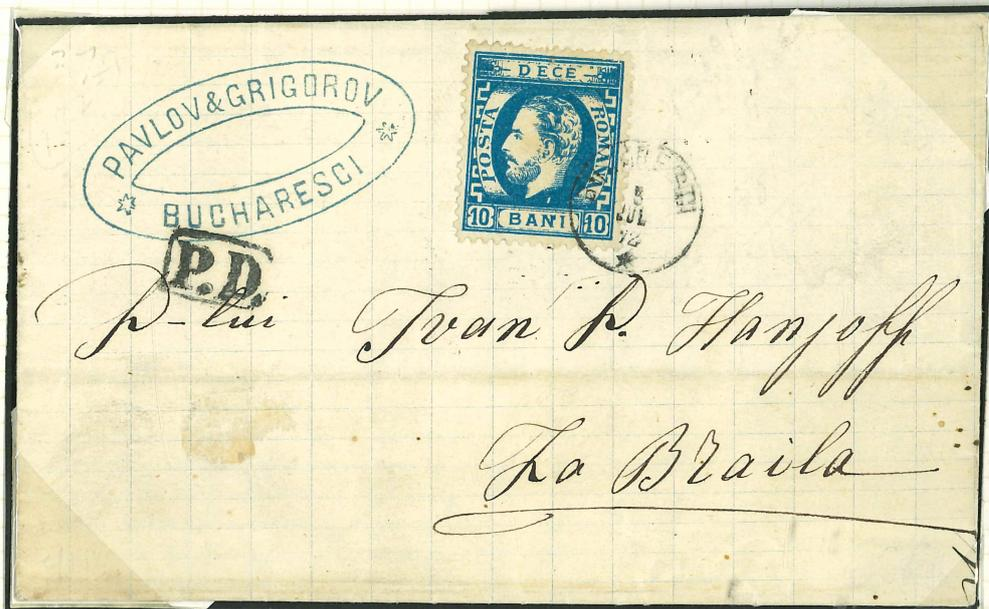 PAVLOV & GRIGOROV
BUCHARESCI
DECE
POSTA
ROMANA
10 BANI 10
JUL
72
P.D.
P-lui Ivan P. Hanjoff
La Braila